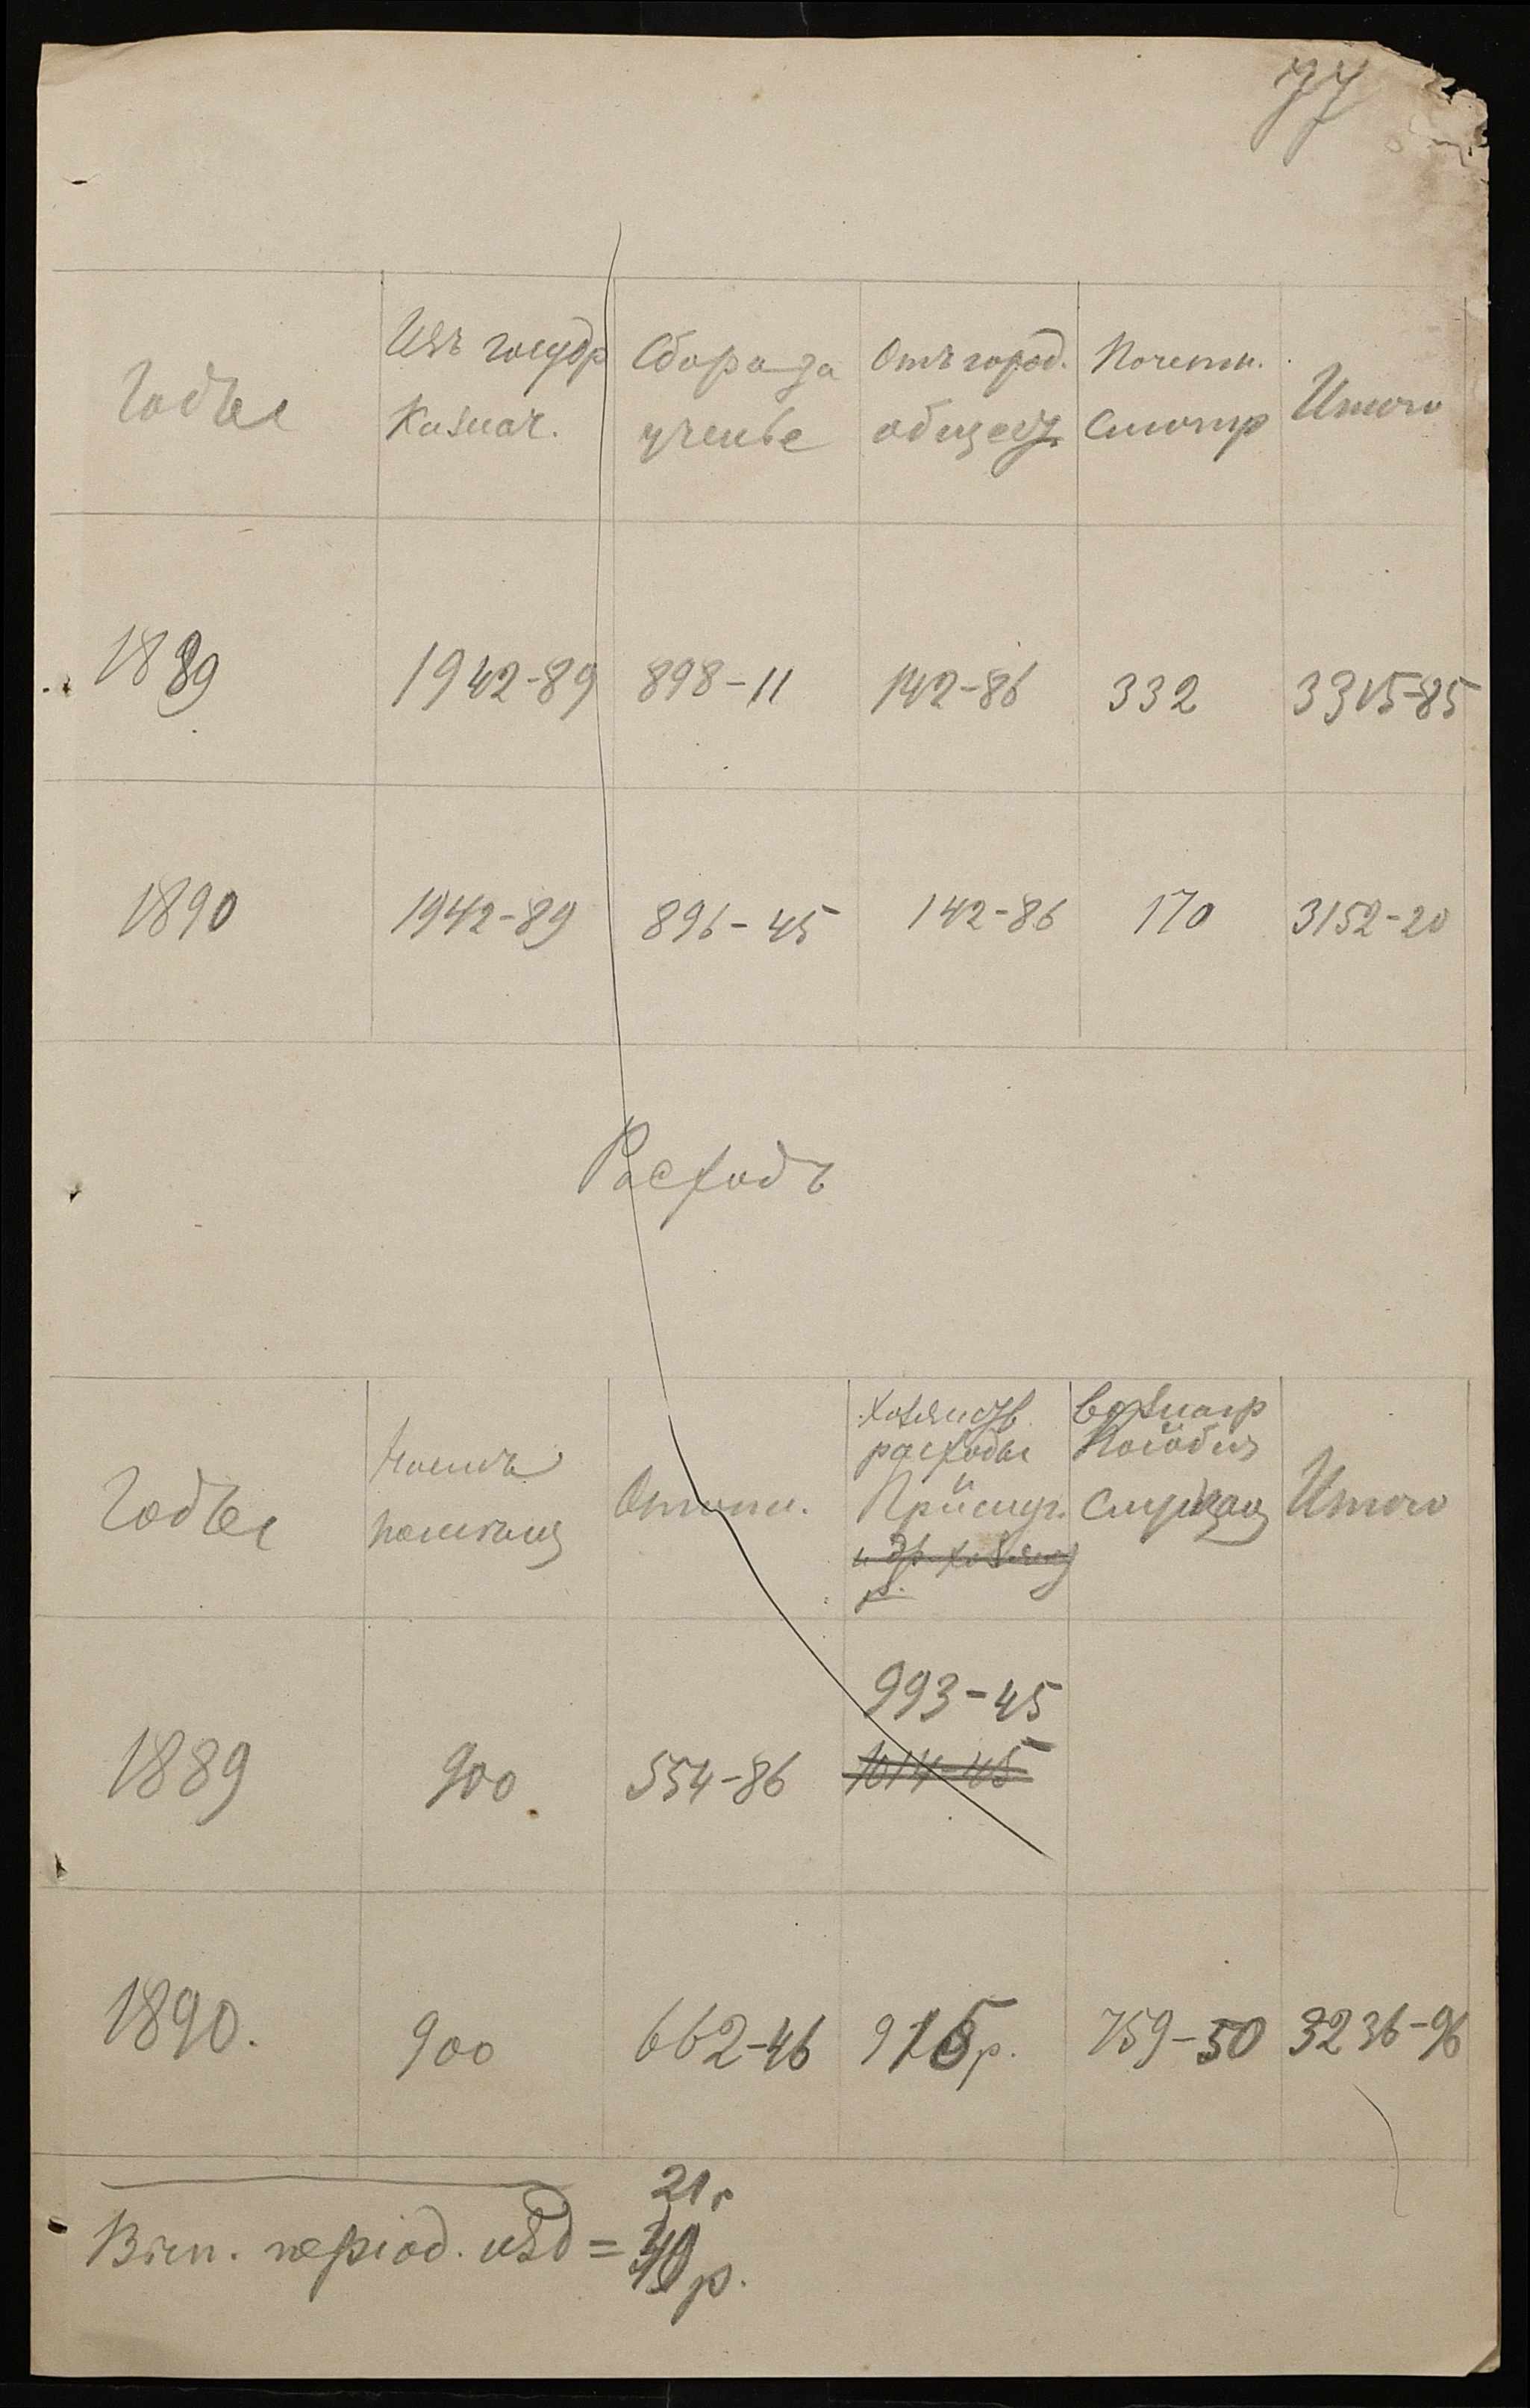 77
Годы
Изъ госудр
Казнач.
Сбора за
ученье
Отъ город.
общест.
Почетн.
Смотр
Итого
1889 1942-89 898-11 142-86 332 3315-85
1890 1942-89 896-45 142-86 170 3152-20
Расходъ
Годы
Наемъ
помѣщ
Отопл.
Хозяйств.
расходы
Прислуг.
и др. хозяйст
р.
Вознагр
Пособия
служащ
Итого
993-45
1889 900 554-86 1014-45
1890. 900 662-46 915р. 759-50 3236-96
21р
Вып. період. изд = 40р.